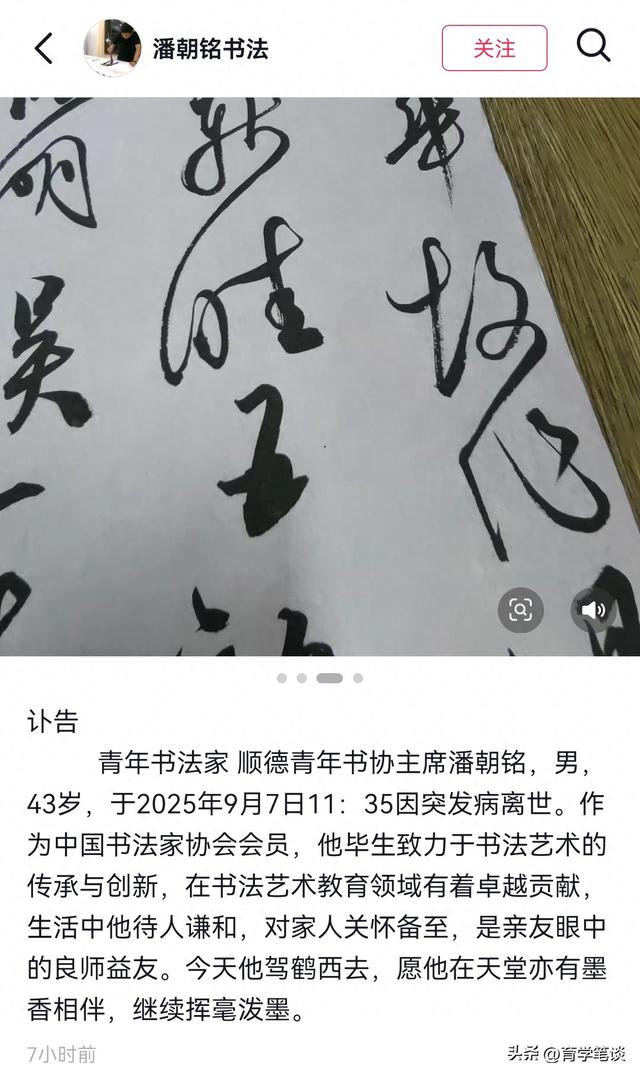 潘朝铭书法
关注
故作
胜王
吴
讣告
青年书法家 顺德青年书协主席潘朝铭，男，
43岁，于2025年9月7日11：35因突发病离世。作
为中国书法家协会会员，他毕生致力于书法艺术的
传承与创新，在书法艺术教育领域有着卓越贡献，
生活中他待人谦和，对家人关怀备至，是亲友眼中
的良师益友。今天他驾鹤西去，愿他在天堂亦有墨
香相伴，继续挥毫泼墨。
7小时前
头条 @育学笔谈